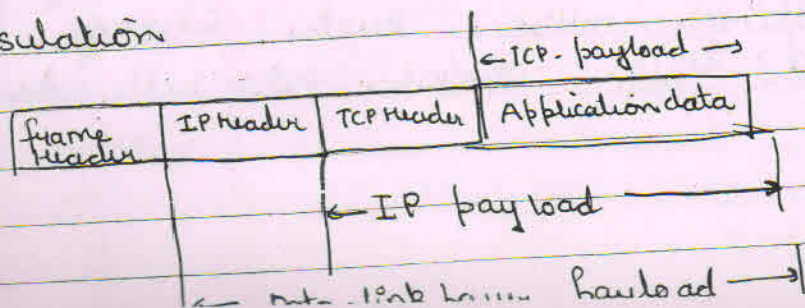 sulation
←TCP-payload→
frame Header IP Header TCP Header Application data
←IP payload→
← payload→